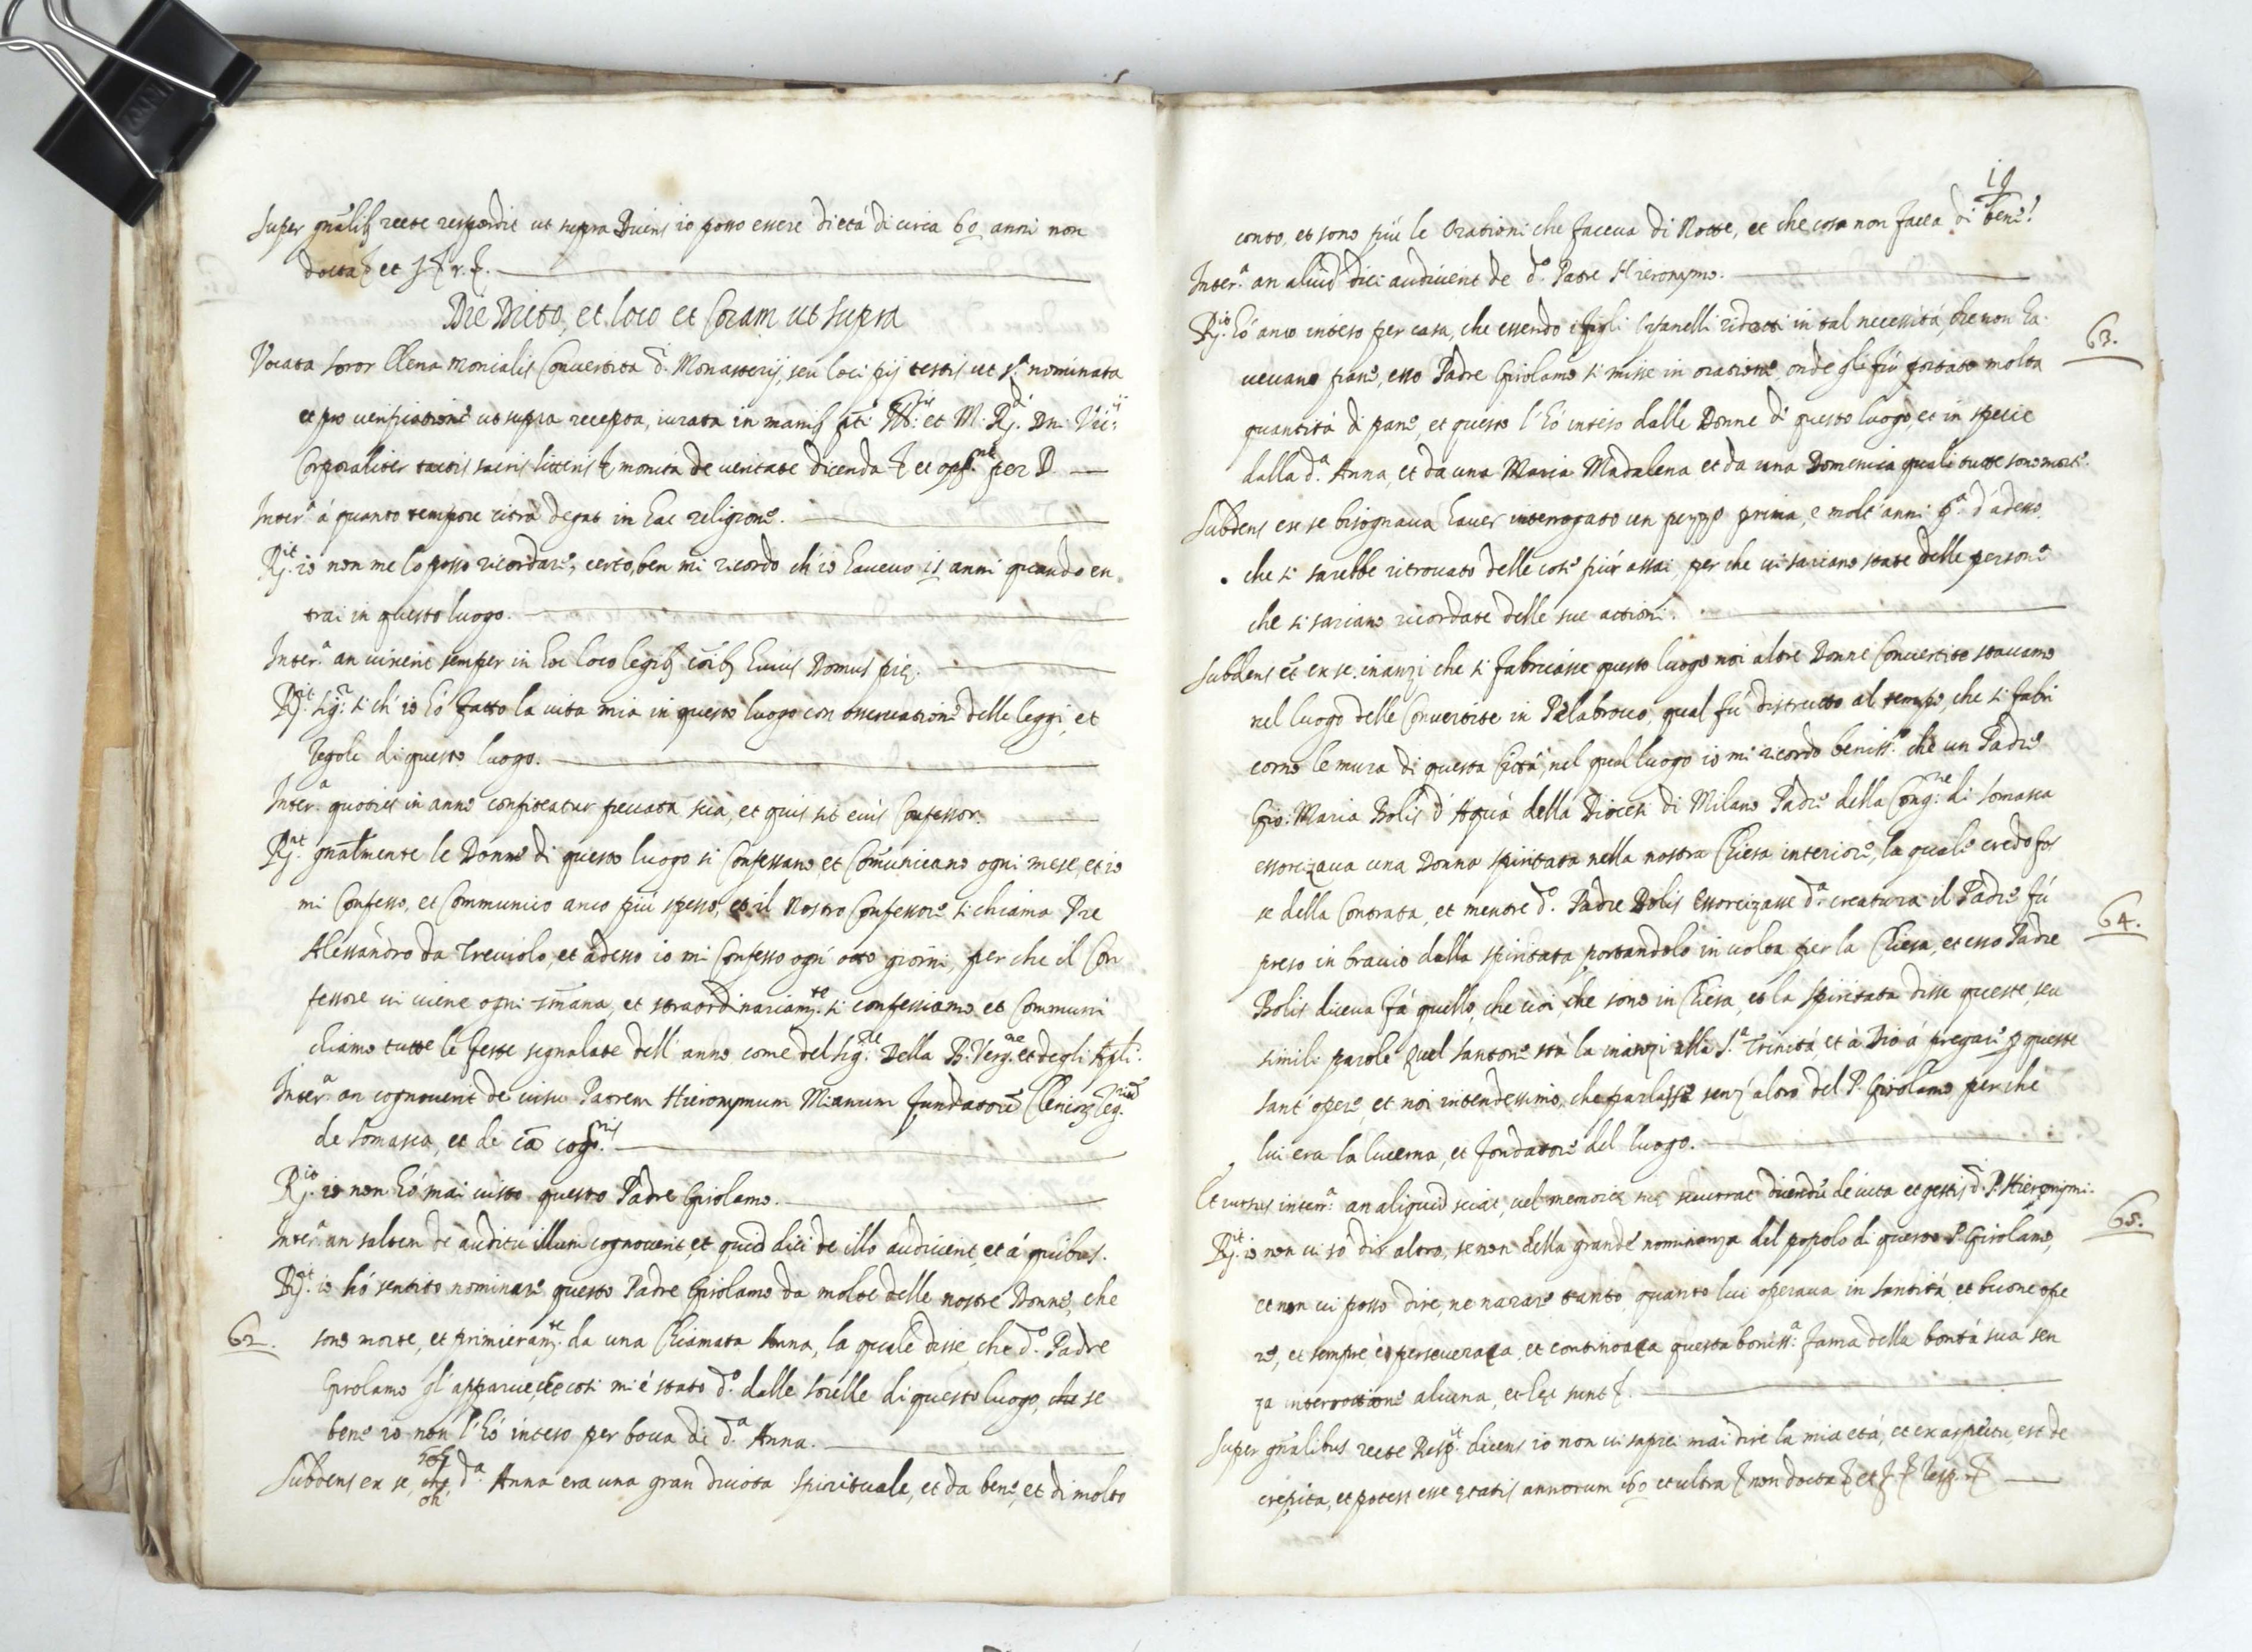 super gn̄alib recte respondit ut supra Dicens io posso essere di età di circa 60 anni non
docta et
Die Dicto, et loco et Coram ut supra
Vocata soror Elena monialis Convertita d. Monasterij, seu loci pij testis ut s.ª nominata
et pro verificatione ut supra recepta, iurata in manib et M: R.
Corporaliter tactis sacris litteris monita de veritate dicenda et per D.
Inter.ª à quanto tempore citra degat in hac religione.
R.it io non me lo posso ricordare, certo, ben mi ricordo ch'io havevo 15 anni quando en
trai in questo luogo.
Inter.ª an vixerit semper in hoc loco legib huius Domus pię.
R.it Sig.r si ch'io hò fatto la vita mia in questo luogo con osservatione delle leggi, et
regole di questo luogo.
Inter.ª quoties in anno confiteatur peccata sua, et quis sit eius Confessor.
R.it gn̄almente le Donne di questo luogo si Confessano et Com̄unicano ogni mese, et io
mi Confesso, et Communico anco più spesso, et il nostro Confessore si chiama Pre
Alessandro da Treviolo, et adesso io mi Confesso ogn'otto giorni, per che il Con
fessore vi viene ogni sm̄ana, et straordinariam.te si confessiamo et Communi
chiamo tutte le feste segnalate dell'anno, come del Sig.re Della B. Verg.ne et degli Apli.
Inter.ª an cognoverit de visu Patrem Hieronymum Mianum fundatorē
de Somasca, et de
R.it io non hò mai visto questo Padre Girolamo.
Inter.ª an saltem de auditu illum cognoverit, et quid dici de illo audiverit, et à quibus.
R.it io hò sentito nominare questo Padre Girolamo da molte delle nostre Donne, che
62. sono morte, et primieram.te da una chiamata Anna, la quale disse, che d.º Padre
Girolamo gl'apparve, et così mi è stato d.º dalle sorelle di questo luogo, che se
bene io non l'hò inteso per bocca di d.ª Anna.
Subdens ex se, d.ª Anna era una gran divota spirituale, et da bene, et di molto
19
conto, et sono più le Orationi che faceva di Notte, et che cosa non facea di bene!
Inter.ª an aliud dici audiverit de d.º Patre Hieronymo.
R.it hò anco inteso per casa, che essendo i figli Orfanelli ridotti in tal necessità, che non ha- 63.
vevano pane, esso Padre Girolamo si misse in oratione, onde gli fù portato molta
quantità di pane, et questo l'hò inteso dalle Donne di questo luogo, et in specie
dalla d.ª Anna, et da una Maria Madalena et da una Domenica quali tutte sono morte.
Subdens ex se bisognava haver interrogato un pezzo prima, e molt'anni p.ª d'adesso,
che si sarebbe ritrovato delle cose più assai, per che vi sariano state delle persone
che si sariano ricordate delle sue attioni.
Subdens et̄ ex se. inanzi che si fabricasse questo luogo noi altre Donne Convertite stavamo
nel luogo delle Convertite in Pelabrocco, qual fù distrutto al tempo, che si fabri
corno le mura di questa Città, nel qual luogo io mi ricordo beniss.º che un Padre
Gio: Maria Bolis d'Aquà della Diocesi di Milano Padre della Cong.ne di Somasca
essorcizava una Donna spiritata nella nostra Chiesa interiore, la quale credo fos
se della Contrata, et mentre d.º Padre Bolis Essorcizasse d.ª creatura il Padre fù 64.
preso in braccio dalla spiritata portandolo in volta per la Chiesa, et esso Padre
Bolis diceva fà quello, che voi, che sono in Chiesa, et la spiritata disse queste, seu
simili parole Quel santone stà la inanzi alla S.ª Trinità, et à Dio à pregare p queste
sant'opere, et noi intendessimo, che parlasse senz'altro del P. Girolamo perchè
lui era la lucerna, et fondatore del luogo.
Et rursus inter.ª an aliquid sciat, vel memoriæ suæ succurrat dicendū de vita et gestis d. P. Hieronymi.
R.it io non vi sò dir altro, se non della grande nominanza del popolo di questo P. Girolamo, 65.
et non vi posso dire, ne narare tanto quanto lui operava in santità, et buone ope
re, et sempre è perseverata, et continoata questa boniss.ª fama della bontà sua sen
za interrottione alcuna, et hęc sunt
Super gn̄alibus recte Resp.it dicens io non vi saprei mai dire la mia età, et ex aspectu, est de
crepita, et potest esse ętatis annorum et ultra non docta et